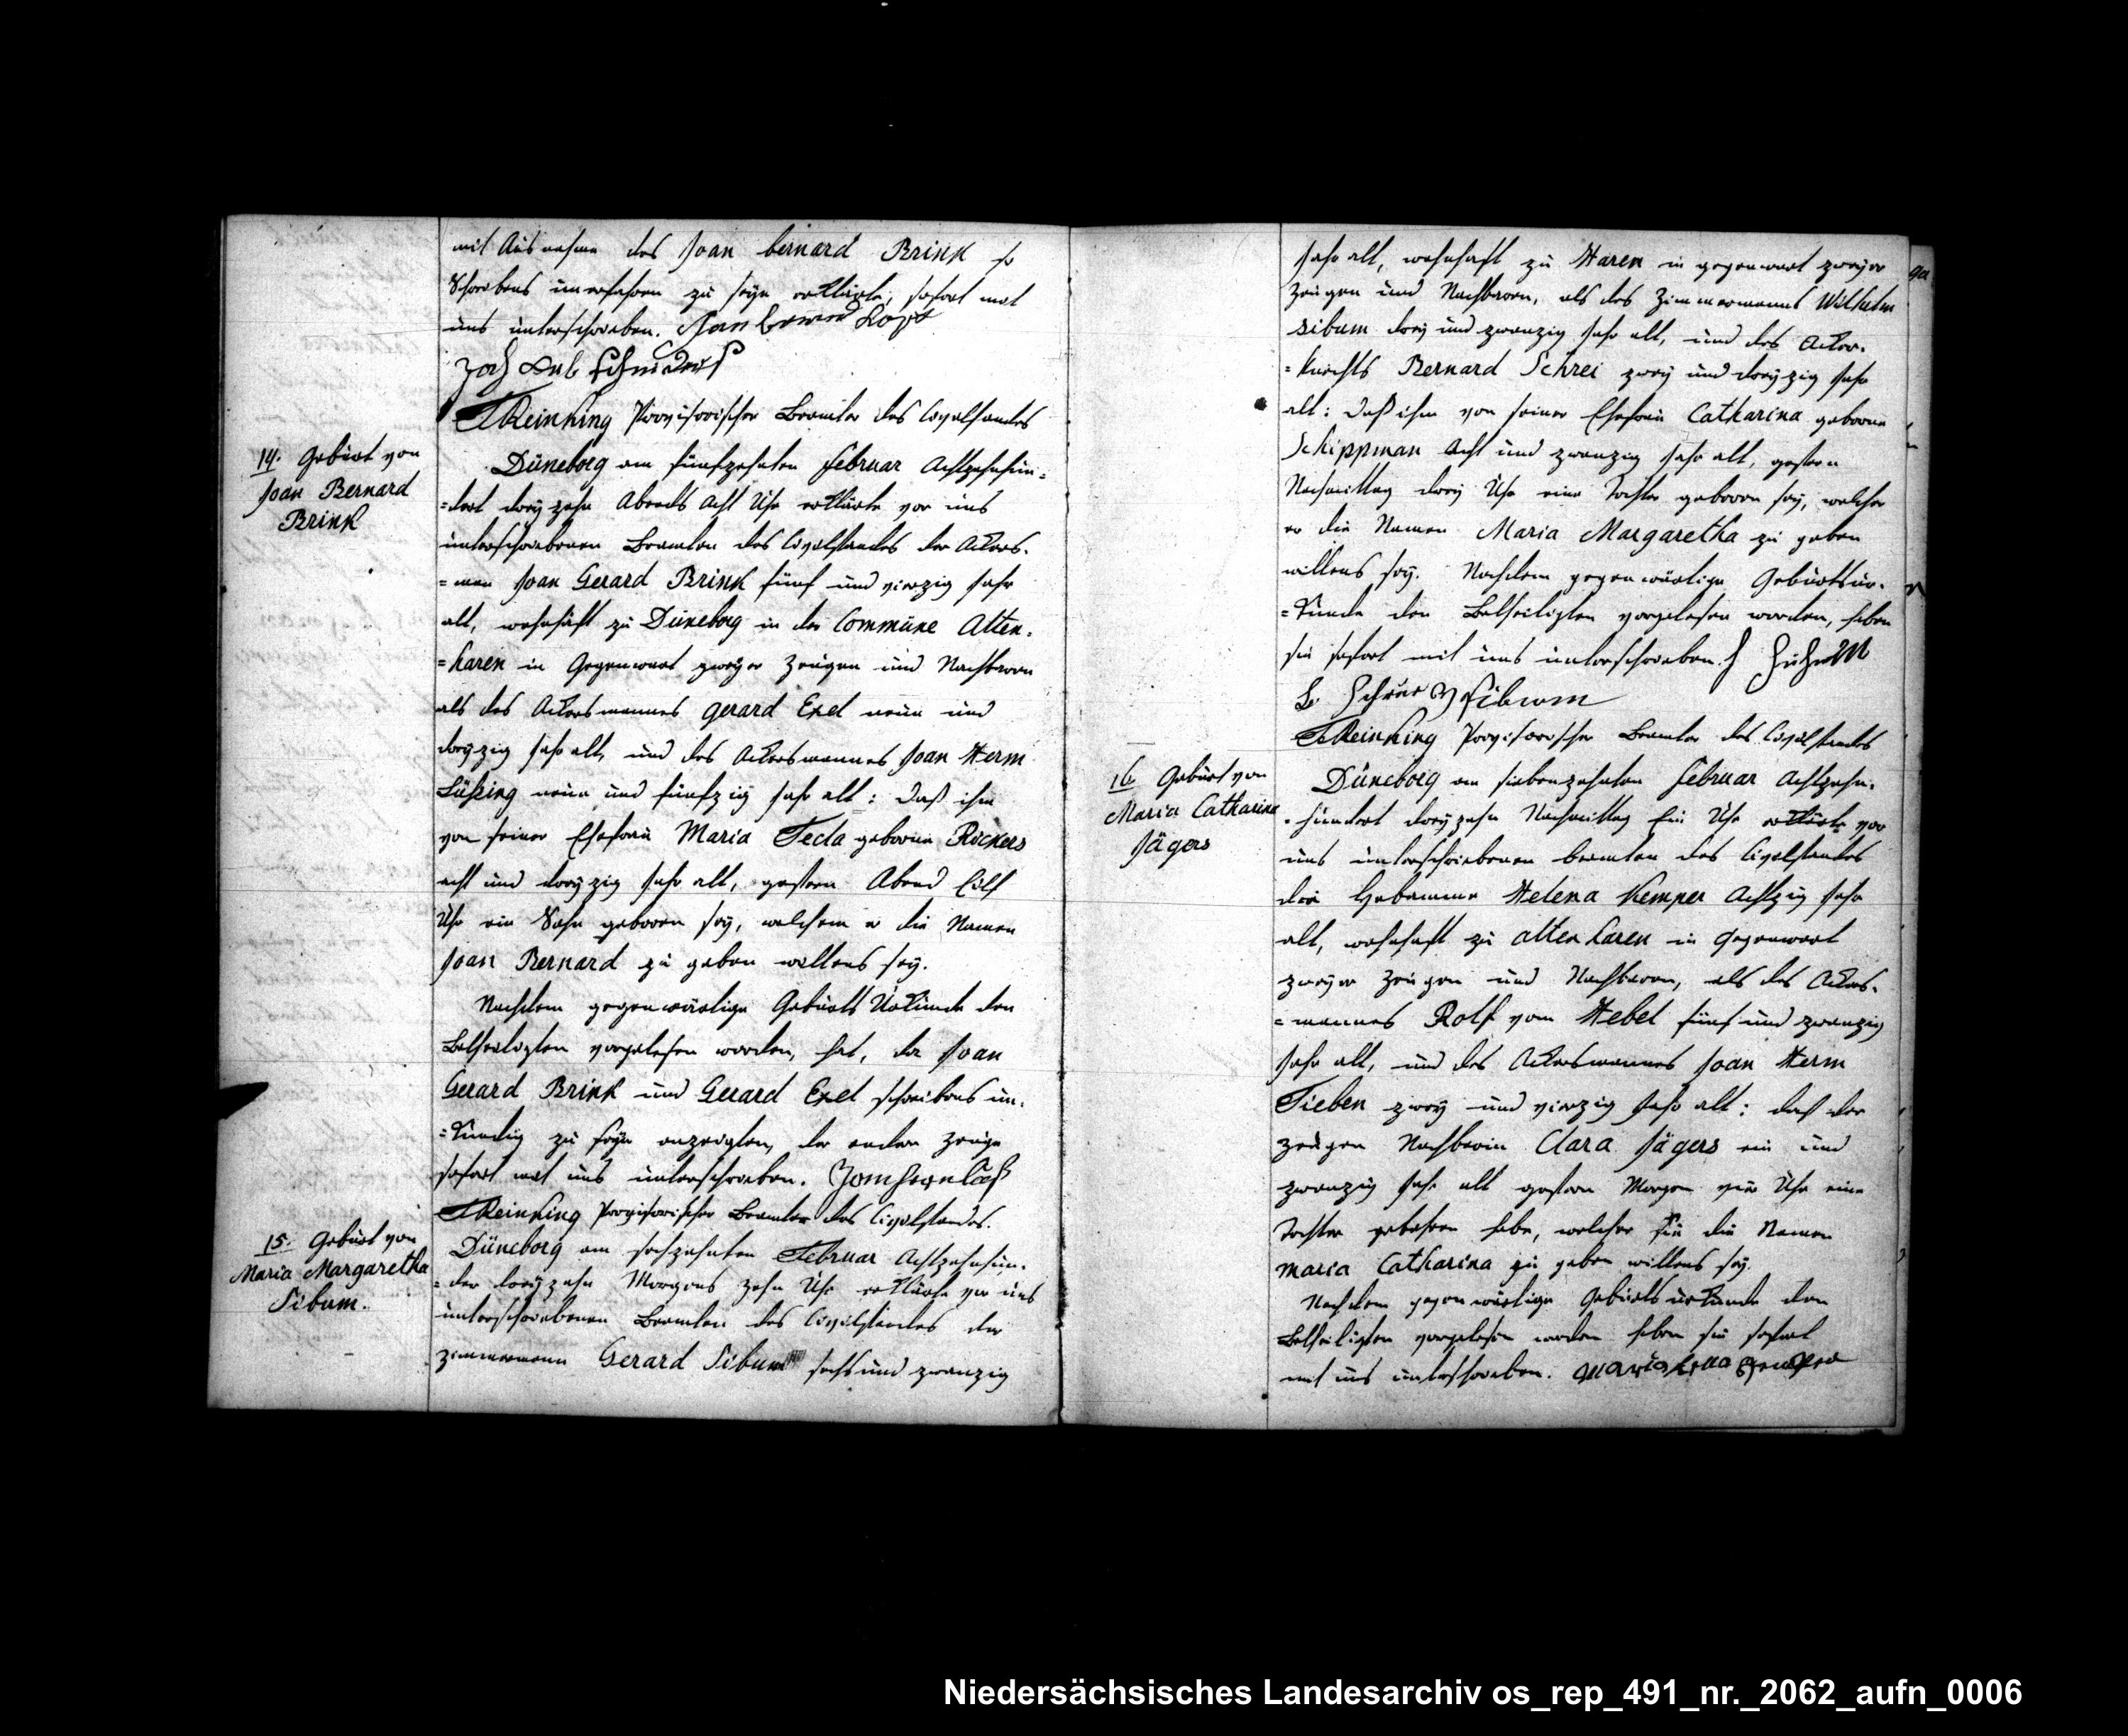 mit Ausnahme des Joan bernard Brink so
Schreibens unerfahren zu seyn erklärte, sofort mit
uns unterschrieben. Jan berend
TReinking Provisorischer Beamter des Civilstandes
14. Geburt von
Joan Bernard
Brink
Düneborg am fünfzehnten Februar Achtzehnhun=
=dert dreyzehn Abends Acht Uhr erklärte vor uns
unterschriebenen Beamten des Civilstandes der Ackers=
=man Joan Gerard Brink fünf und vierzig Jahr
alt, wohnhaft zu Düneborg in der Commüne Alten=
=haren in Gegenwart zweyer Zeugen und Nachbaren
als des Ackersmannes Gerard Exel neun und
dreyzig Jahr alt, und des Ackersmannes Joan Herm
Lüßing neun und fünfzig Jahr alt: daß ihm
von seiner Ehefrau Maria Tecla geborne Rickers
acht und dreyzig Jahr alt, gestern Abend Eilf
Uhr ein Sohn geboren sey, welchem er die Namen
Joan Bernard zu geben willens sey.
Nachdem gegenwärtige Geburts Urkunde den
Betheiligten vorgelesen worden, hat, da Joan
Gerard Brink und Gerard Exel schreibens un=
=kundig zu seyn anzeigten, der andere Zeuge
sofort mit uns unterschrieben.
TReinking Provisorischer Beamter des Civilstandes.
15. Geburt von
Maria Margaretha
Sibum.
Düneborg am sechzehnten Februar Achtzehnhun=
=der dreyzehn Morgens zehn Uhr erklärte vor uns
unterschriebenen Beamten des Civilstandes der
Zimmermann Gerard Sibum sechs und zwanzig
Jahr alt, wohnhaft zu Haren in gegenwart zweyer
Zeugen und Nachbaren, als des Zimmermanns Wilhelm
Sibum drey und zwanzig Jahr alt, und des Acker=
=knechts Bernard Schrei zwey und dreyzig Jahr
alt: daß ihm von seiner Ehefrau Catharina geborne
Schippman Acht und zwanzig Jahr alt, gestern
Nachmittag drey Uhr eine Tochter geboren sey, welcher
er die Namen Maria Margaretha zu geben
willens sey. Nachdem gegenwärtige Geburtsur=
=kunde den Betheiligten vorgelesen worden, haben
sie sofort mit uns unterschrieben.
TReinking Provisorischer Beamter des Civilstandes
16 Geburt von
Maria Catharina
Jägers
Düneborg am siebenzehnten Februar Achtzehn=
=hundert dreyzehn Nachmittag Ein Uhr erklärte vor
uns unterschriebenen beamten des Civilstandes
die Hebamme Helena Kemper Achtzig Jahr
alt, wohnhaft zu Altenharen in Gegenwart
zweyer Zeugen und Nachbaren, als des Ackers=
=mannes Rolf vom Hebel fünf und zwanzig
Jahr alt, und des Ackersmannes Joan Herm
Tieben zwey und vierzig Jahr alt: daß der
Zeugen Nachbarin Clara Jägers ein und
zwanzig Jahr alt gestern Morgen vier Uhr eine
Tochter gebohren habe, welcher sie die Namen
Maria Catharina zu geben willens sey.
Nachdem gegenwärtige Geburtsurkunde den
Betheiligten vorgelesen worden haben sie sofort
mit uns unterschrieben.
Niedersächsisches Landesarchiv os_rep_491_nr._2062_aufn_0006